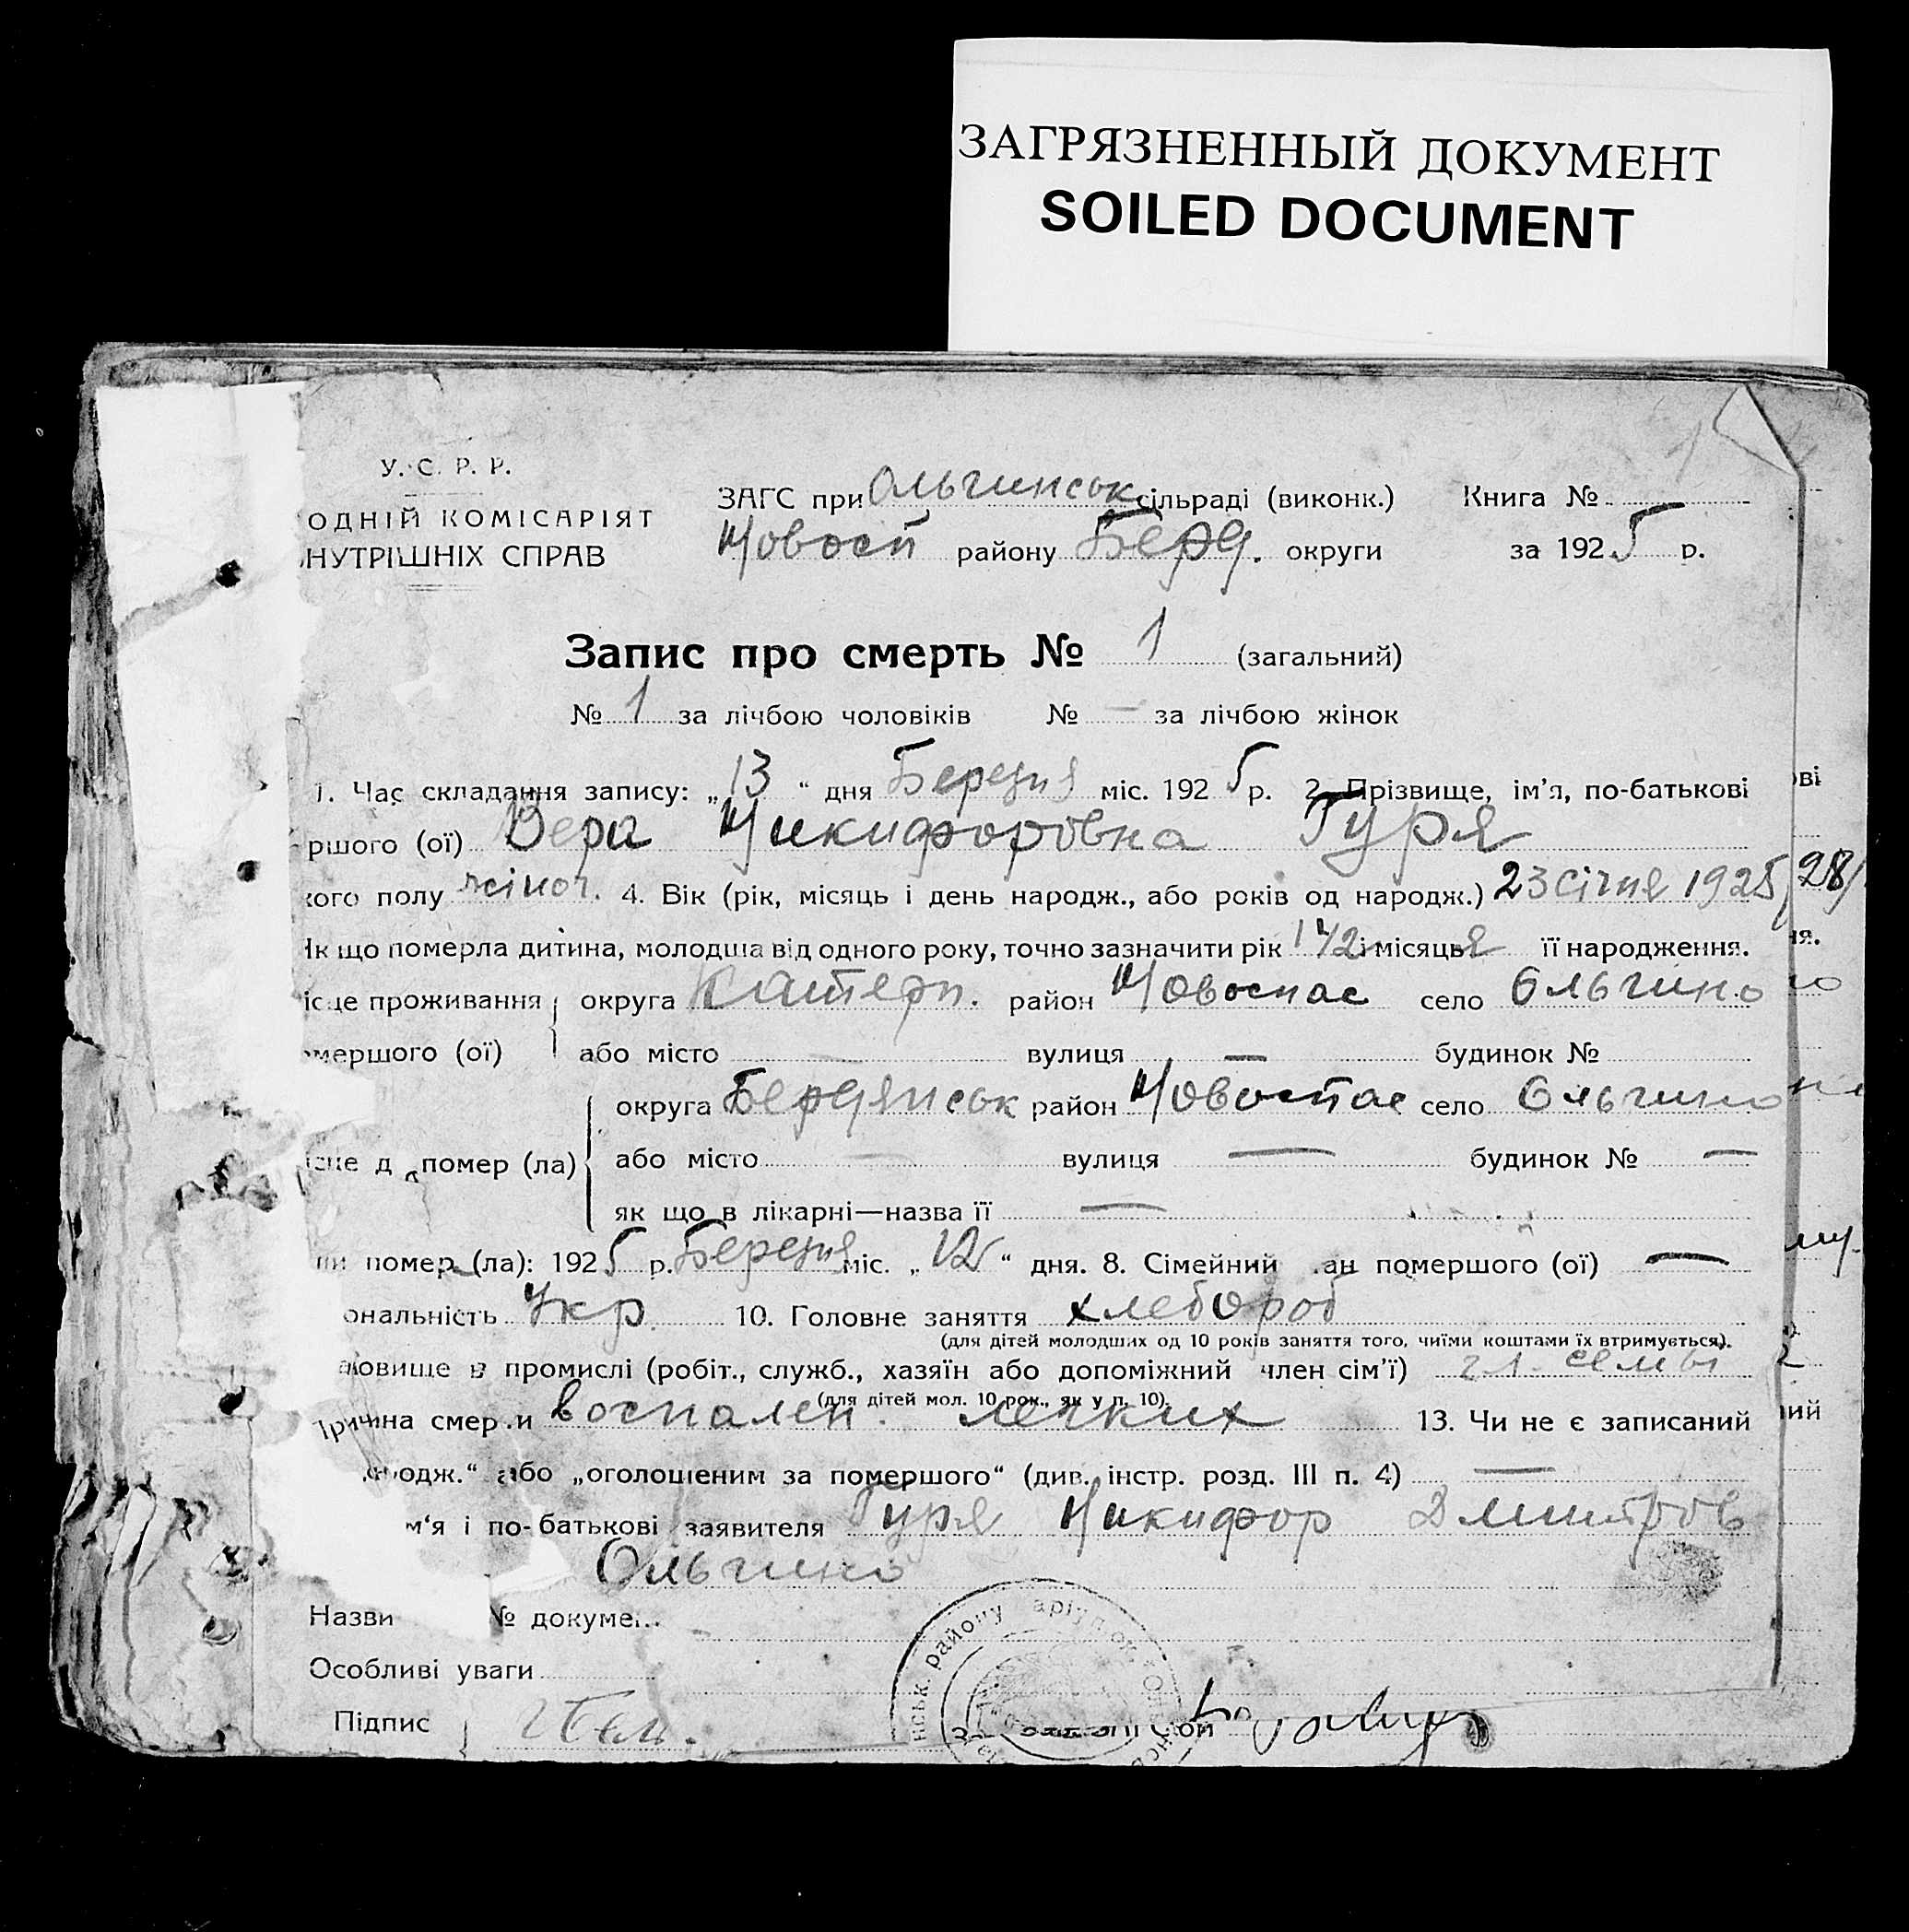 ЗАГРЯЗНЕННЫЙ ДОКУМЕНТ
SOILED DOCUMENT
У. С. Р. Р.
ОДНІЙ КОМІСАРІЯТ
НУТРІШНІХ СПРАВ
ЗАГС при Ольгинськ сільраді (виконк.)
Новосп району Берд. округи
Книга №
за 1925 р.
Запис про смерть № 1 (загальний)
№ 1 за лічбою чоловіків № — за лічбою жінок
1. Час складання запису: „13“ дня Березня міс. 1925 р. 2. Прізвище, ім'я, по-батькові
ршого (ої) Вера Никифоровна Гуря
кого полу жіноч. 4. Вік (рік, місяць і день народж., або років од народж.) 23 січня 1925
Як що померла дитина, молодша від одного року, точно зазначити рік 1 1/2 і місяць її народження.
ісце проживання округа Катерп. район Новоспас село Ольгино
омершого (ої) або місто — вулиця — будинок №
округа Бердянськ район Новоспас село Ольгино
помер (ла) або місто — вулиця — будинок № —
як що в лікарні—назва її —
помер (ла): 1925 р. Березня міс. „12“ дня. 8. Сімейний ан помершого (ої) —
ональність Укр. 10. Головне заняття хлебороб
(для дітей молодших од 10 років заняття того, чиїми коштами їх втримується).
новище в промислі (робіт., служб., хазяїн або допоміжний член сім'ї) гл. семьи
(для дітей мол. 10 рок., як у п. 10).
Причина смер и воспален. легких 13. Чи не є записаний
родж.“ або „оголошеним за помершого“ (див. інстр. розд. III п. 4) —
м'я і по-батькові заявителя Гуря Никифор Дмитров
Ольгино
Назви № докуме
Особливі уваги
Підпис